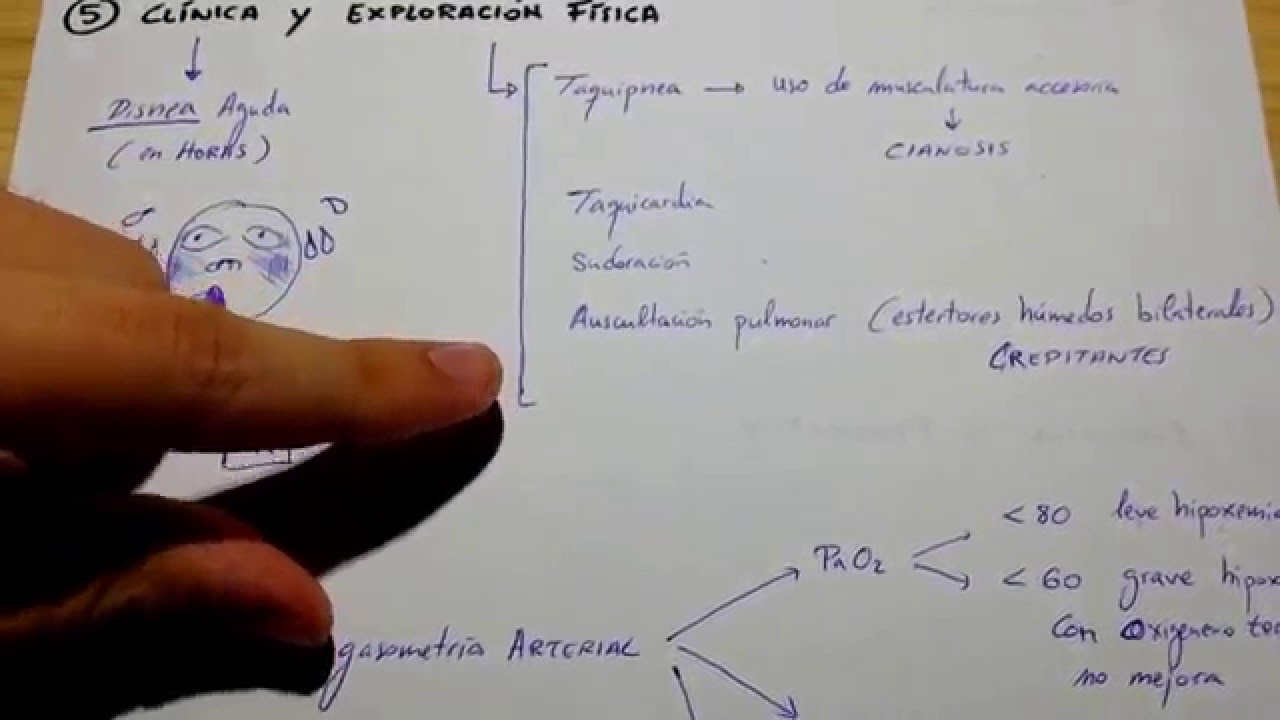 ⑤ CLÍNICA y EXPLORACIÓN FÍSICA
Disnea Aguda
(en HORAS)
Taquipnea → uso de musculatura accesoria
CIANOSIS
Taquicardia
Sudoración
Auscultación pulmonar (estertores húmedos bilaterales)
CREPITANTES
gasometría ARTERIAL
PaO2
< 80 leve hipoxemia
< 60 grave hipox
Con Oxigeno ter
no mejora